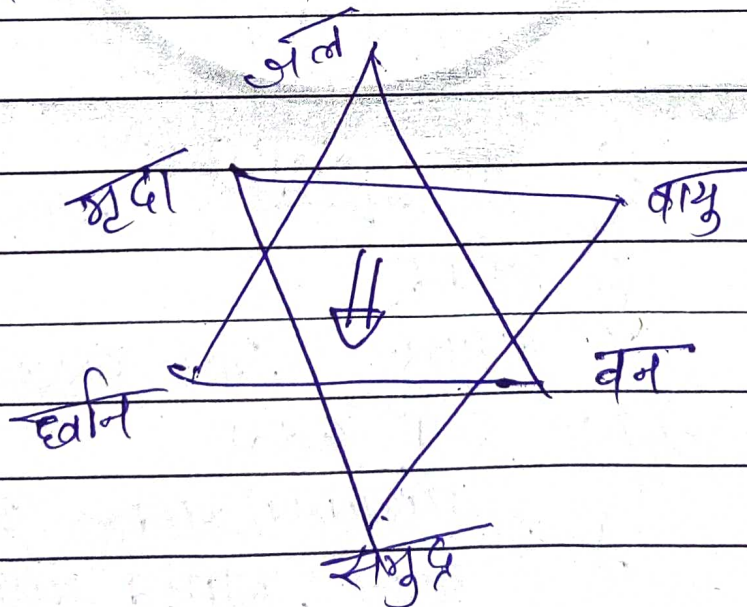 जल
मृदा
वायु
ध्वनि
वन
समुद्र